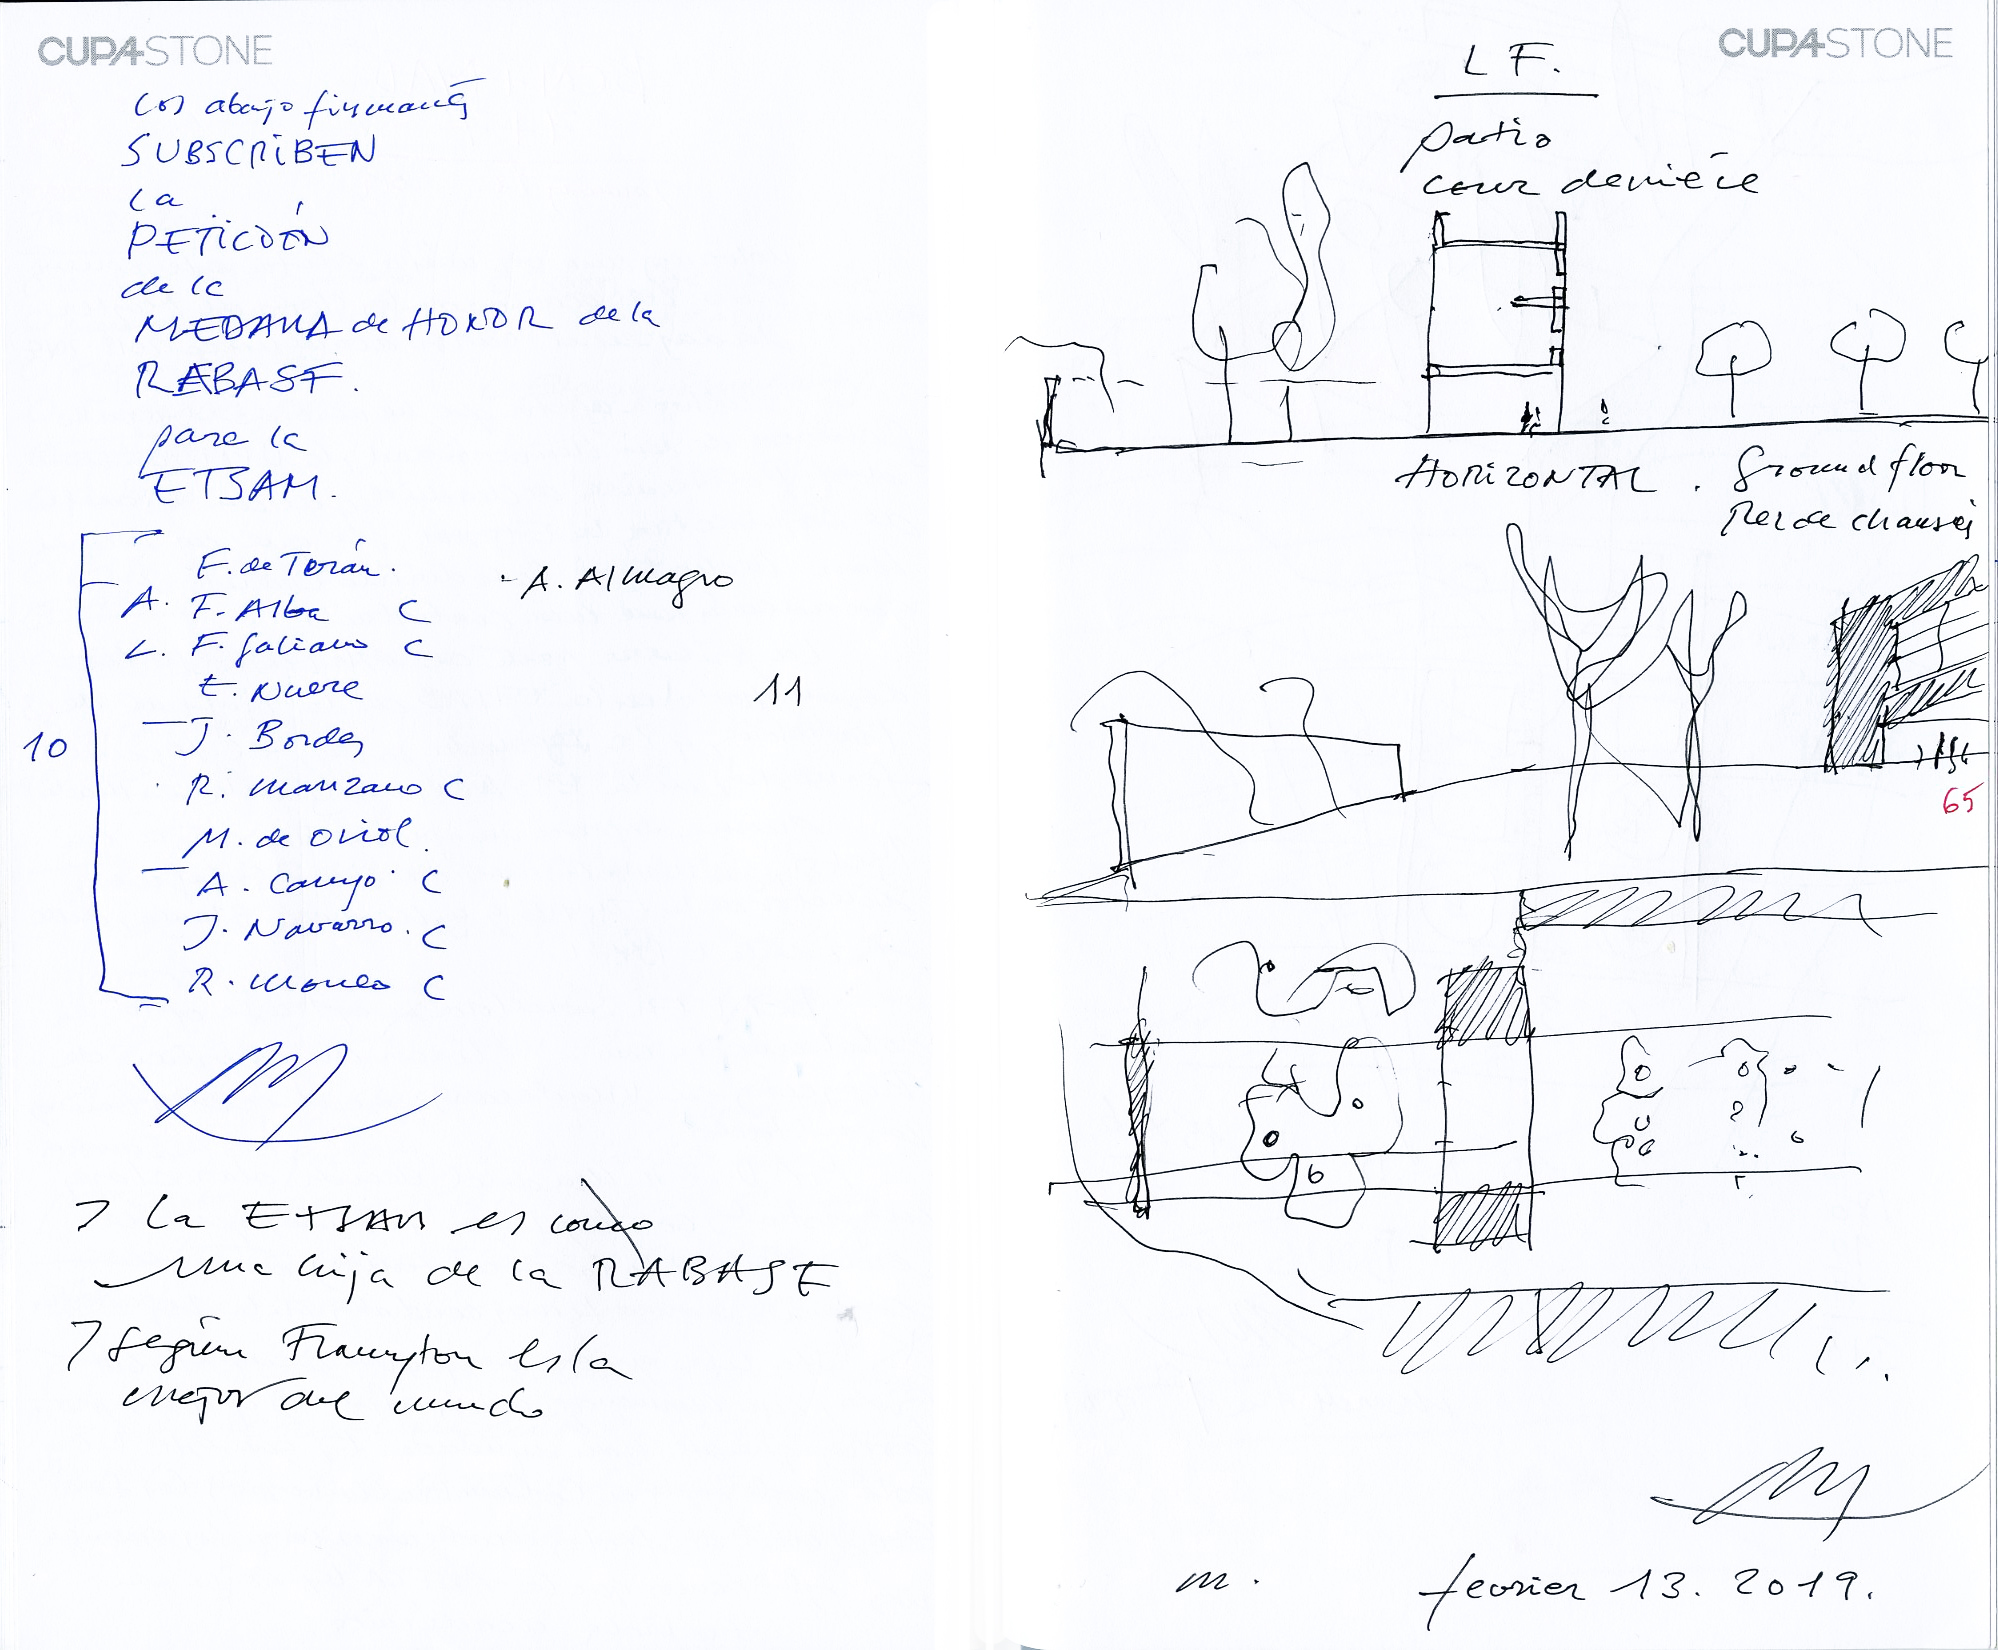 CUPASTONE
los abajo firmantes
SUBSCRIBEN
la
PETICIÓN
de la
MEDALLA de HONOR de la
RABASF.
para la
ETSAM.
F. de Terán.
A. F. Alba C
L. F. Galiano C
E. Nuere
J. Bordes
R. Manzano C
M. de Oriol.
A. Campo C
J. Navarro. C
R. Moneo C
10
- A. Almagro
11
> La ETSAM es como
una hija de la RABASF
> Según Frampton es la
mejor del mundo
CUPASTONE
L F.
patio
cour derrière
HORIZONTAL. Ground floor
Rez de chaussée
65
m. fevrier 13. 2019.